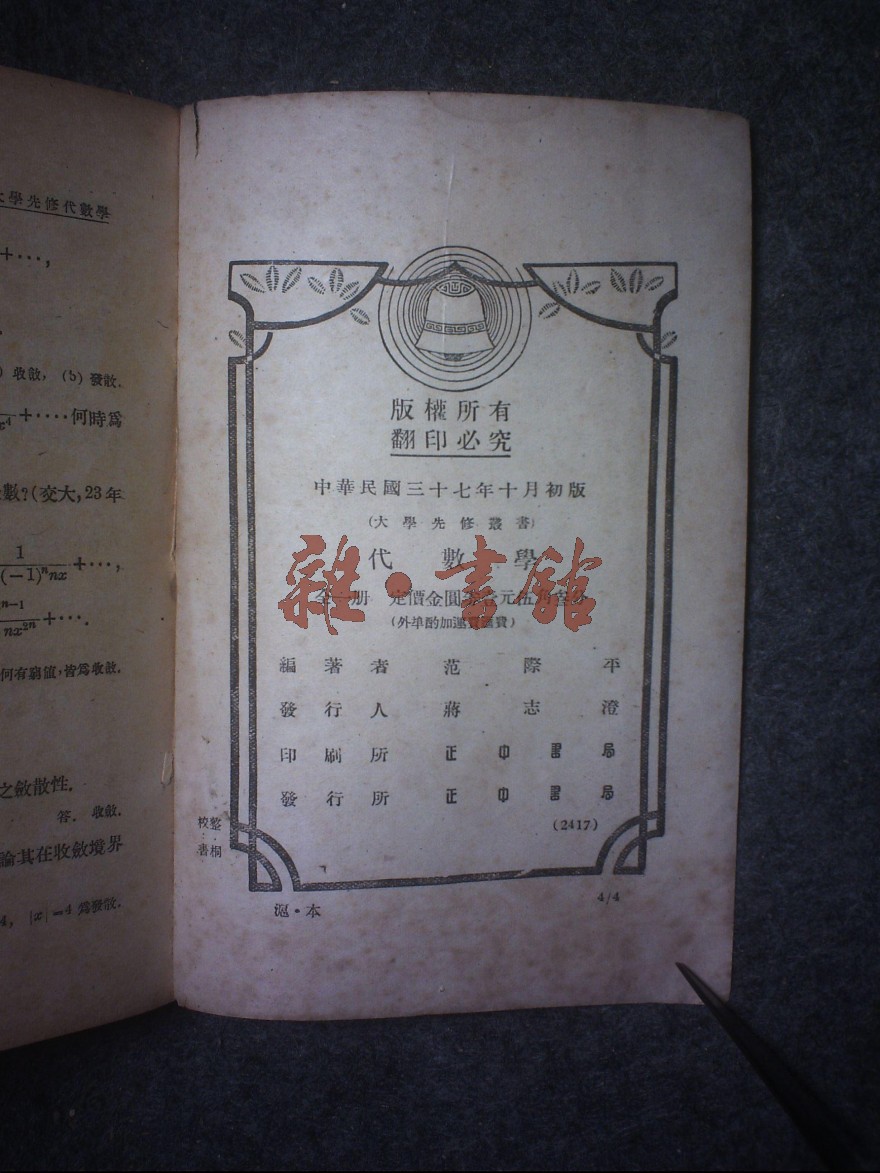 大學先修代數學
+···,
收斂, (b) 發散.
+····何時爲
數?(交大, 23年
1
(-1)ⁿnx +···,
n-1
nx²ⁿ +···.
何有窮値,皆爲收斂.
之斂散性.
答. 收斂.
論其在收斂境界
4, |x|=4 爲發散.
版權所有
翻印必究
中華民國三十七年十月初版
(大學先修叢書)
代數學
全一册 定價金圓
(外埠酌加運費匯費)
編著者 范際平
發行人 蔣志澄
印刷所 正中書局
發行所 正中書局
(2417)
校:書
整·桐
滬·本
4/4
雜·書館